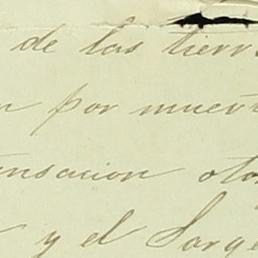 de las tierr
por muert
nsacion oto
y el Sarge